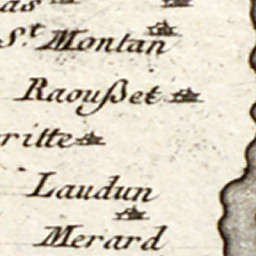 as
S.t Montan
Raoußet
ritte
Laudun
Merard